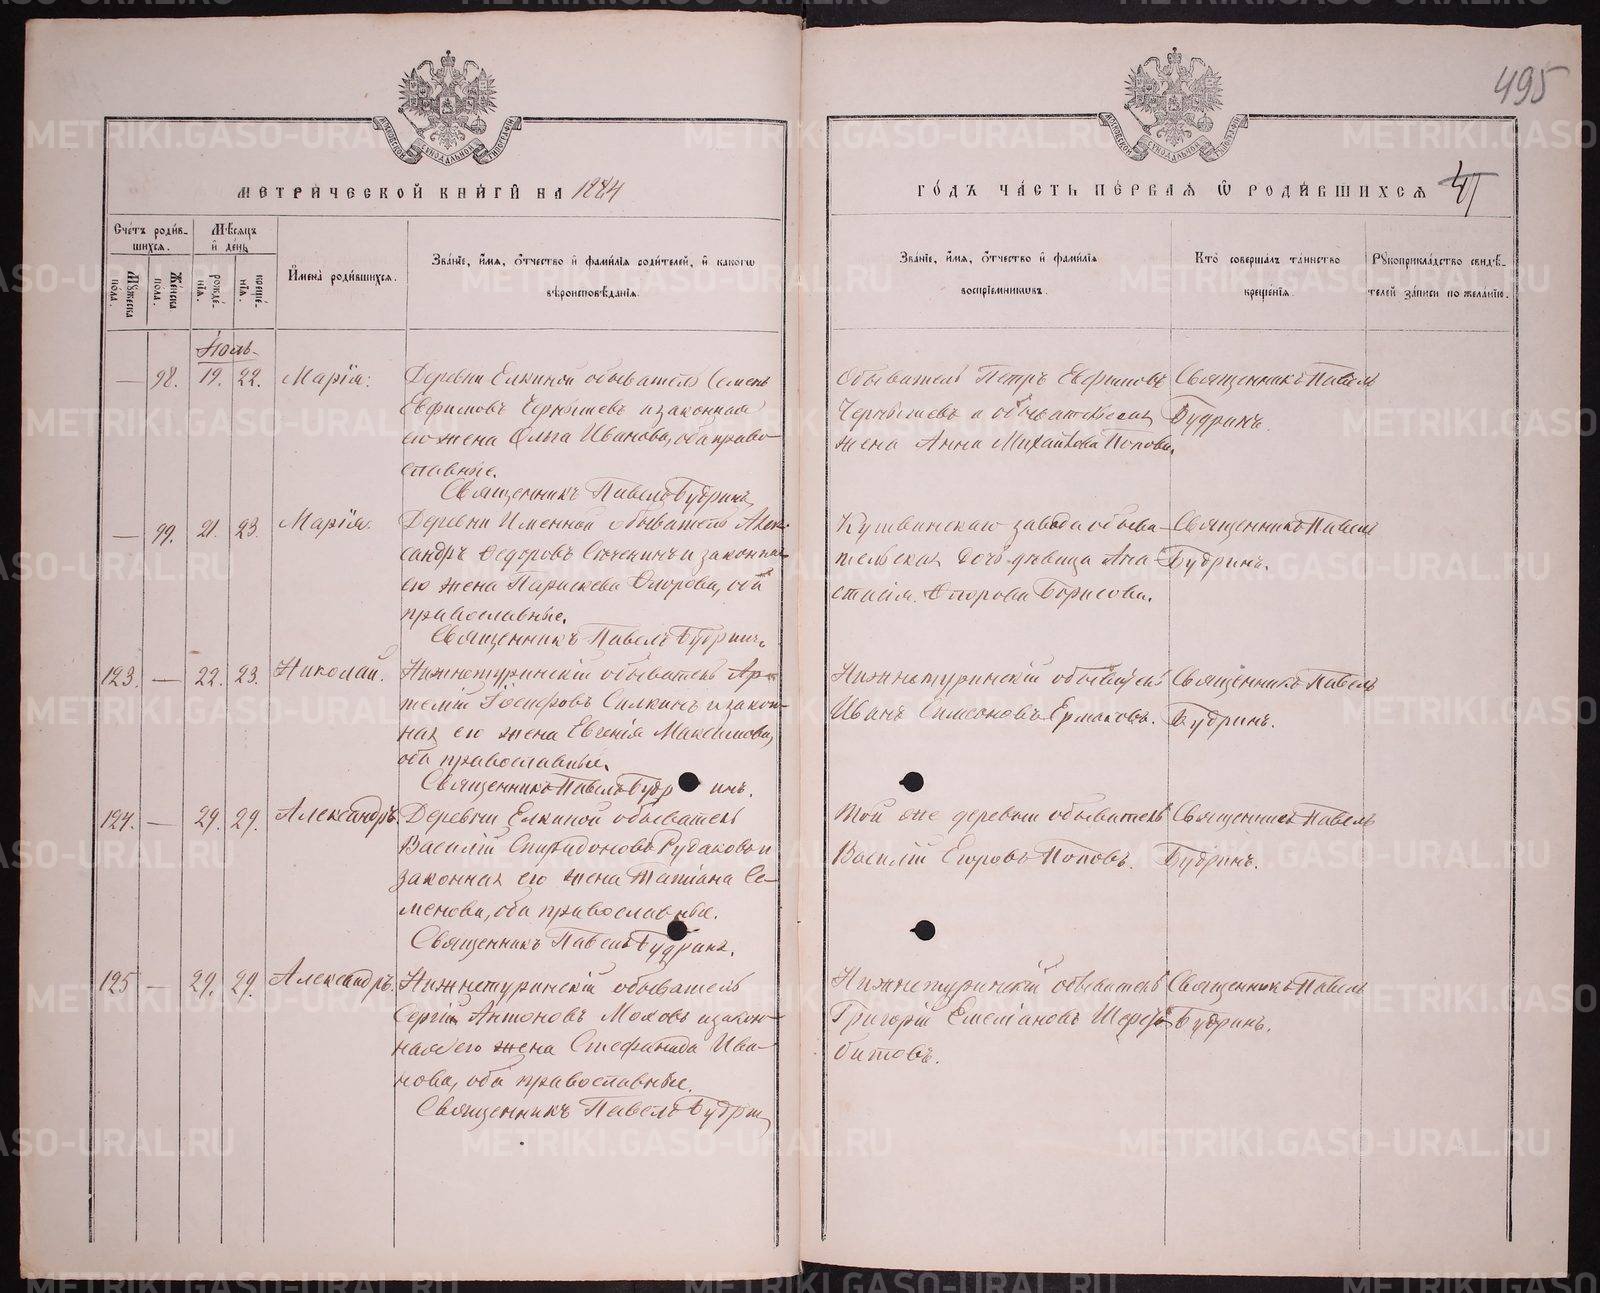 495
МЕТРИ́ЧЕСКОЙ КНИ́ГИ НА 1884
ГО́ДЪ ЧА́СТЬ ПЕ́РВАЯ Ѡ РОДИ́ВШИХСЯ
Сче́тъ роди́в-
шихся.
Му́жеска пола.
Же́нска пола.
Мѣ́сяцъ
и де́нь
рожде́-
нїя.
креще́-
нїя.
И́мена роди́вшихся.
Зва́нїе, и́мя, о́тчество и фами́лїя роди́телей, и како́гѡ
вѣроисповѣ́данїя.
Зва́нїе, и́мя, о́тчество и фами́лїя
воспрїе́мниковъ.
Кто̀ соверша́лъ та́инство
креще́нїя.
Рукоприкла́дство свидѣ́-
телей за́писи по жела́нїю.
Іюль
— 98. 19. 22. Марія.
Деревни Елкиной обыватель Семенъ
Евфимовъ Чернышевъ и законная
его жена Ольга Иванова, оба право-
славные.
Священникъ Павелъ Будринъ
Обыватель Петръ Евфимовъ
Чернышевъ и обывательская
жена Анна Михайлова Попова.
Священникъ Павелъ
Будринъ.
— 99. 21. 23. Марія.
Деревни Именной обыватель Алек-
сандръ Ѳедоровъ и законная
его жена Параскева оба
православные.
Священникъ Павелъ Будринъ.
Кушвинскаго завода обыва-
тельская дочь девица Ана-
стасія Борисова.
Священникъ Павелъ
Будринъ.
123. — 22. 23. Николай.
Нижнетуринскій обыватель Ар-
темій Іосифовъ Силкинъ и закон-
ная его жена Евгенія Максимова,
оба православные.
Священникъ Павелъ Будринъ.
Нижнетуринскій обыватель
Иванъ Симеоновъ Ермаковъ.
Священникъ Павелъ
Будринъ.
124. — 29. 29. Александръ.
Деревни Елкиной обыватель
Василій Спиридоновъ Рудаковъ и
законная его жена Татіана Се-
менова, оба православные.
Священникъ Павелъ Будринъ.
Той же деревни обыватель
Василій Егоровъ Поповъ.
Священникъ Павелъ
Будринъ.
125 — 29. 29. Александръ.
Нижнетуринскій обыватель
Сергій Антоновъ Моховъ и закон-
ная его жена Стефанида Ива-
нова, оба православные.
Священникъ Павелъ Будринъ
Нижнетуринскій обыватель
Григорій Емеліановъ Шере-
битовъ.
Священникъ Павелъ
Будринъ.
METRIKI.GASO-URAL.RU